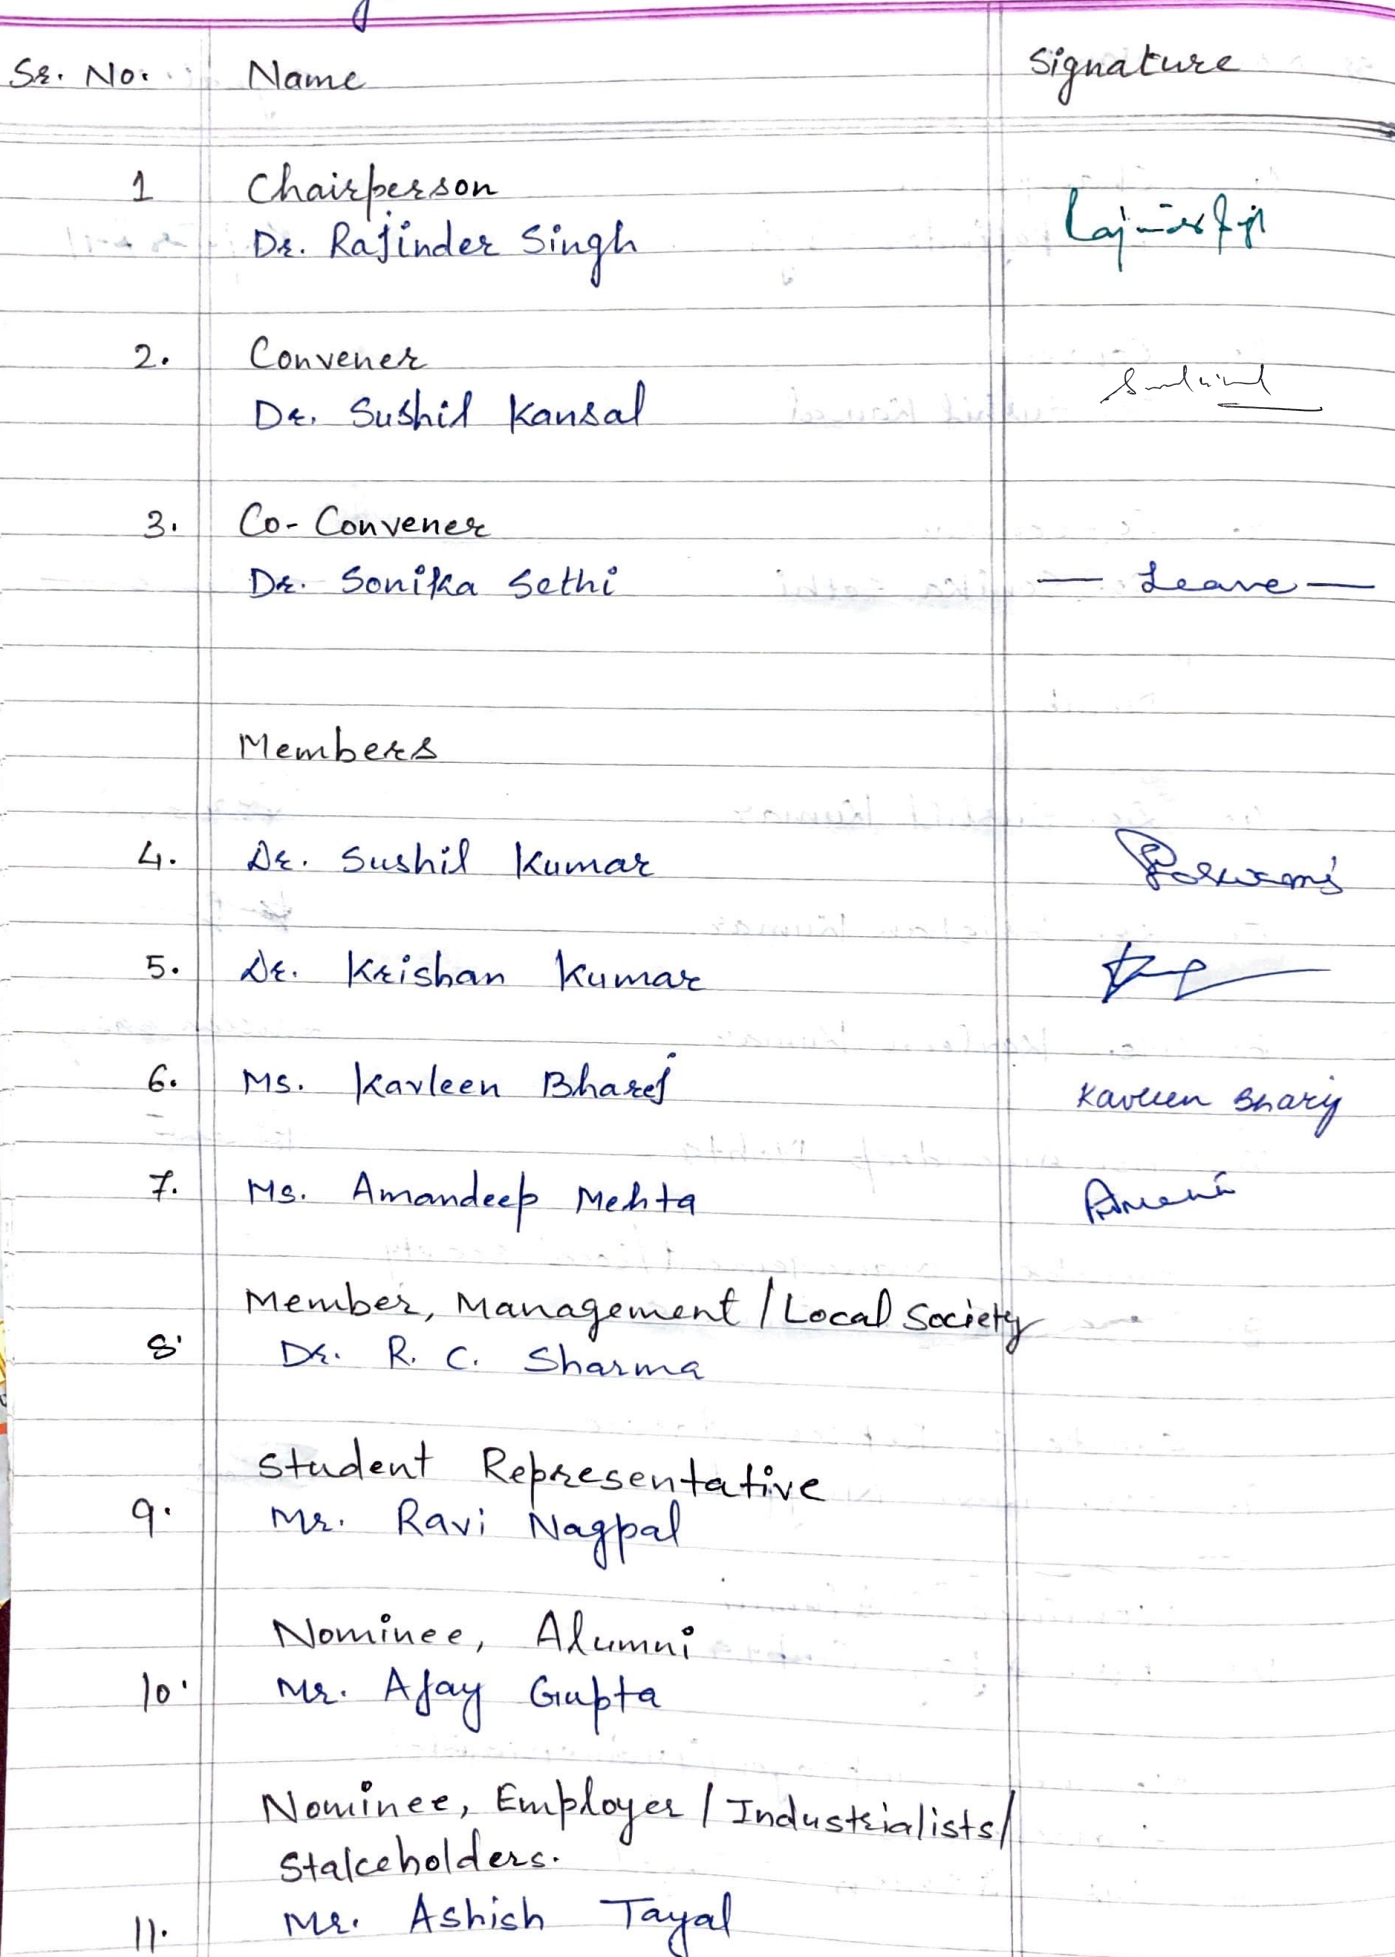 Sr. No. Name Signature
1 Chairperson
Dr. Rajinder Singh
2. Convener
Dr. Sushil Kansal
3. Co-Convener
Dr. Sonika Sethi — Leave —
Members
4. Dr. Sushil Kumar Goswami
5. Dr. Krishan Kumar
6. Ms. Kavleen Bharej Kavleen Bharij
7. Ms. Amandeep Mehta
Member, Management / Local Society
8. Dr. R. C. Sharma
Student Representative
9. Mr. Ravi Nagpal
Nominee, Alumni
10. Mr. Ajay Gupta
Nominee, Employer / Industrialists/
Stakeholders.
11. Mr. Ashish Tayal